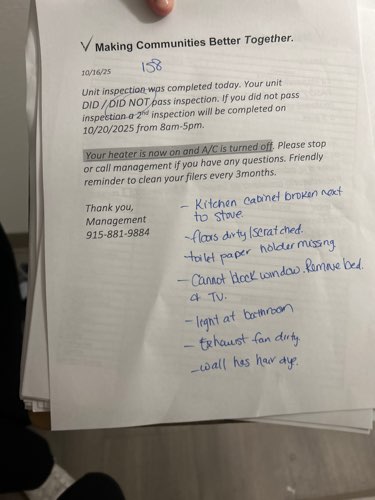 ✓ Making Communities Better Together.
10/16/25
158
Unit inspection was completed today. Your unit
DID / DID NOT pass inspection. If you did not pass
inspection a 2nd inspection will be completed on
10/20/2025 from 8am-5pm.
Your heater is now on and A/C is turned off. Please stop
or call management if you have any questions. Friendly
reminder to clean your filers every 3months.
Thank you,
Management
915-881-9884
- Kitchen cabinet broken next
to stove.
- floors dirty/scratched.
- toilet paper holder missing
- Cannot block window. Remove bed.
& TV.
- light at bathroom
- Exhaust fan dirty.
- wall has hair dye.